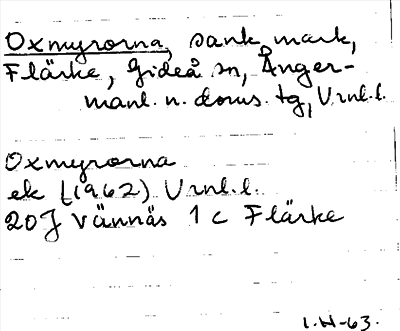 Oxmyrorna, sank mark,
Flärke, Gideå sn, Ånger-
manl. n. doms. tg, Vrnl.l.
Oxmyrorna
ek (1962) Vrnl.l.
20J Vännäs 1 c Flärke
I.H-63.